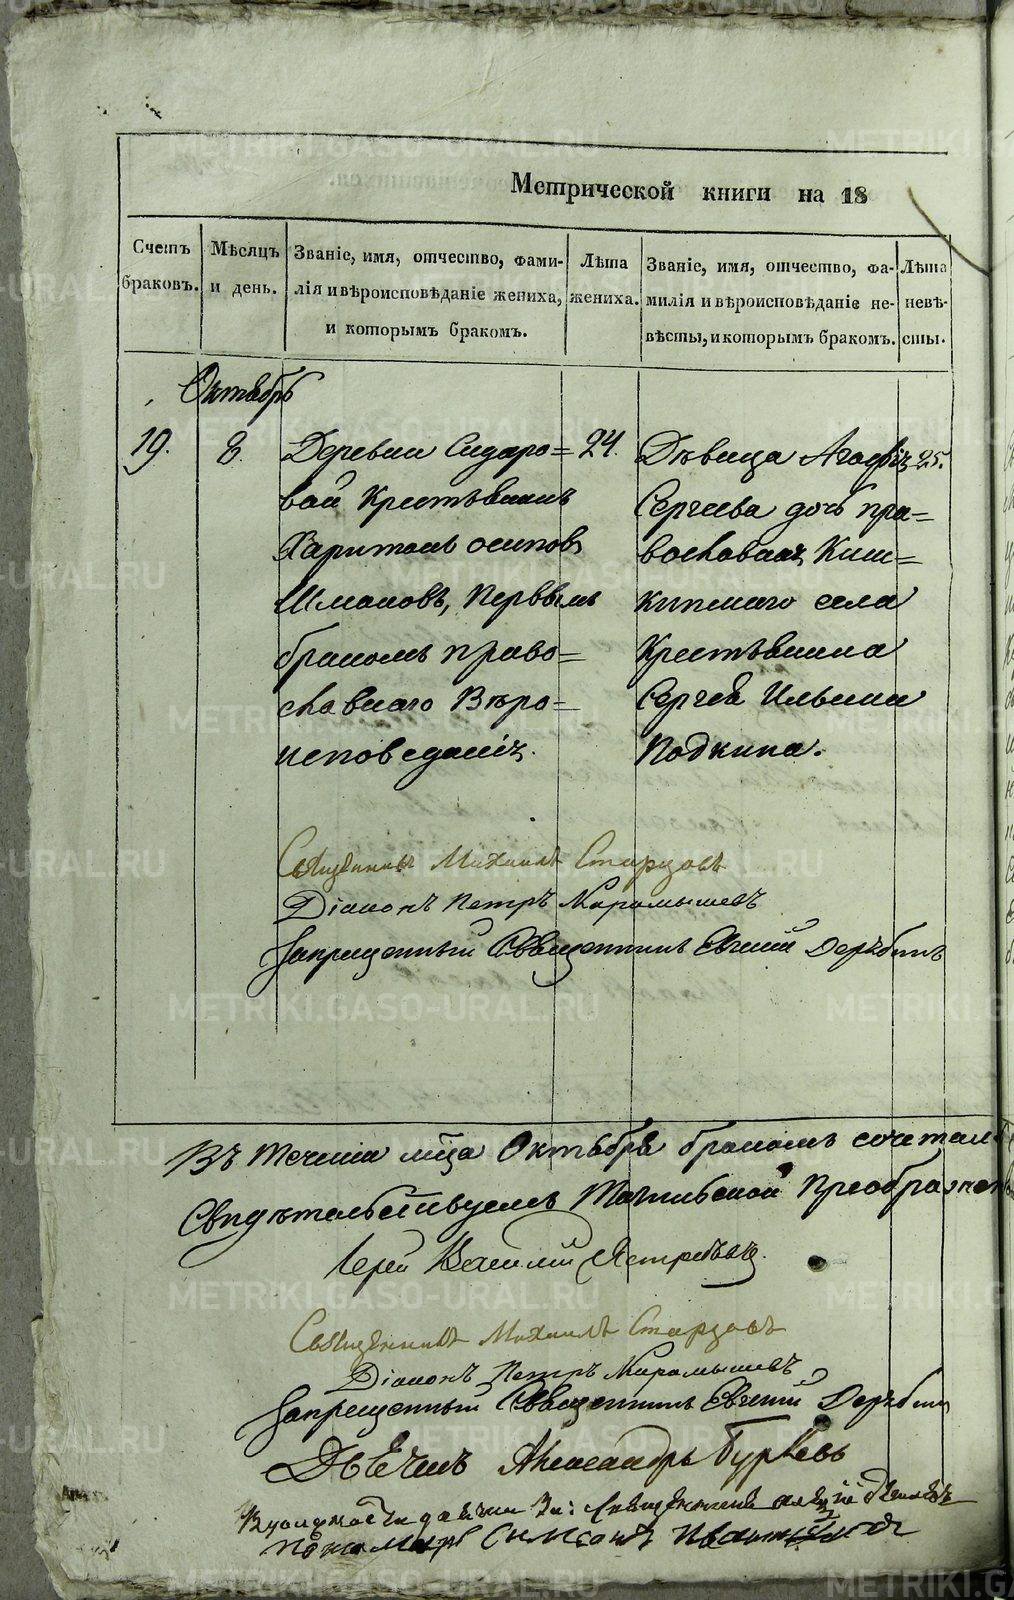 Метрической книги на 18
Счетъ браковъ.
Мѣсяцъ и день.
Званіе, имя, отчество, фами-
лія и вѣроисповѣданіе жениха,
и которымъ бракомъ.
Лѣта жениха.
Званіе, имя, отчество, фа-
милія и вѣроисповѣданіе не-
вѣсты, и которымъ бракомъ.
Лѣта невѣ-
сты.
Октябрь
19.
8.
Деревни Сидоро=
вой Крестьянинъ
Харитонъ осиповъ
Шмаковъ, Первымъ
бракомъ право=
славнаго Вѣро=
исповеданія.
24.
Дѣвица Агафія
Сергеева дочь пра=
вославная Киш=
кинскаго села
Крестьянина
Сергея Ильина
Подкина.
25.
Священникъ Михаилъ Старцовъ
Діаконъ Петръ Карамышевъ
Запрещенный Священникъ Евгений Дерябинъ
Въ течении мца Октября бракомъ сочетал
Свидѣтельствуемъ Преображен
Іерей Василій Ястребовъ
Священникъ Михаилъ Старцовъ
Діаконъ Петръ Карамышевъ
Запрещенный Священникъ Евгений Дерябин
Дьячекъ Александръ
Въ должности дьячка За: Священникъ
Пономарь
METRIKI.GASO-URAL.RU